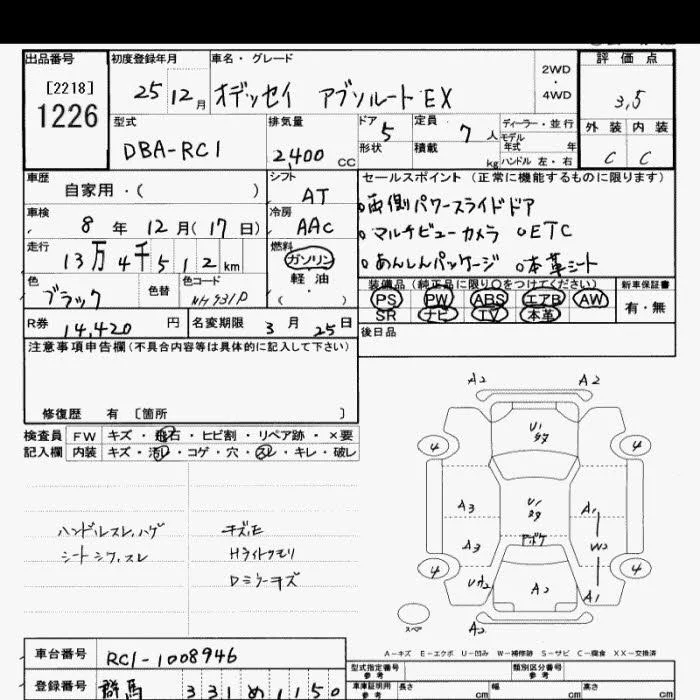 出品番号
[2218]
1226
初度登録年月
25 12 月
車名・グレード
オデッセイ アブソルートEX
2WD
・
4WD
評価点
3,5
外装 内装
C C
型式
DBA-RC1
排気量
2,400 CC
ドア 5
形状
定員 7 人
積載 kg
ディーラー・並行
モデル年式 年
ハンドル 左・右
車歴
自家用・( )
シフト
AT
車検
8 年 12 月 (17 日)
冷房
AAC
走行
13万4千512km
燃料
ガソリン
軽油
( )
色
ブラック
色替
色コード
NH731P
R券 14,420 円
名変期限 3 月 25 日
セールスポイント (正常に機能するものに限ります)
両側パワースライドドア
マルチビューカメラ ETC
あんしんパッケージ 本革シート
装備品(純正品に限り○をつけてください)
PS PW ABS エアB AW
SR ナビ TV 本革
新車保証書
有・無
後日品
注意事項申告欄(不具合内容等は具体的に記入して下さい)
修復歴 有 [箇所 ]
検査員 FW キズ・飛石・ヒビ割・リペア跡・×要
記入欄 内装 キズ・汚レ・コゲ・穴・スレ・キレ・破レ
ハンドルスレ,ハゲ
シートシワ,スレ
キズ,E
Hライトクモリ
Dミラーキズ
A2 A2
U1
4 4
U1
A3 A1
A3 W2
4 4
UA2 A2 A1
スペア
A2
A-キズ E-エクボ U-凹み W-補修跡 S-サビ C-腐食 XX-交換済
車台番号 RC1-1008946
登録番号 群馬 331 め 1150
型式指定番号
参考
類別区分番号
参考
車庫証明用
参考
長さ cm
幅 cm
高さ cm